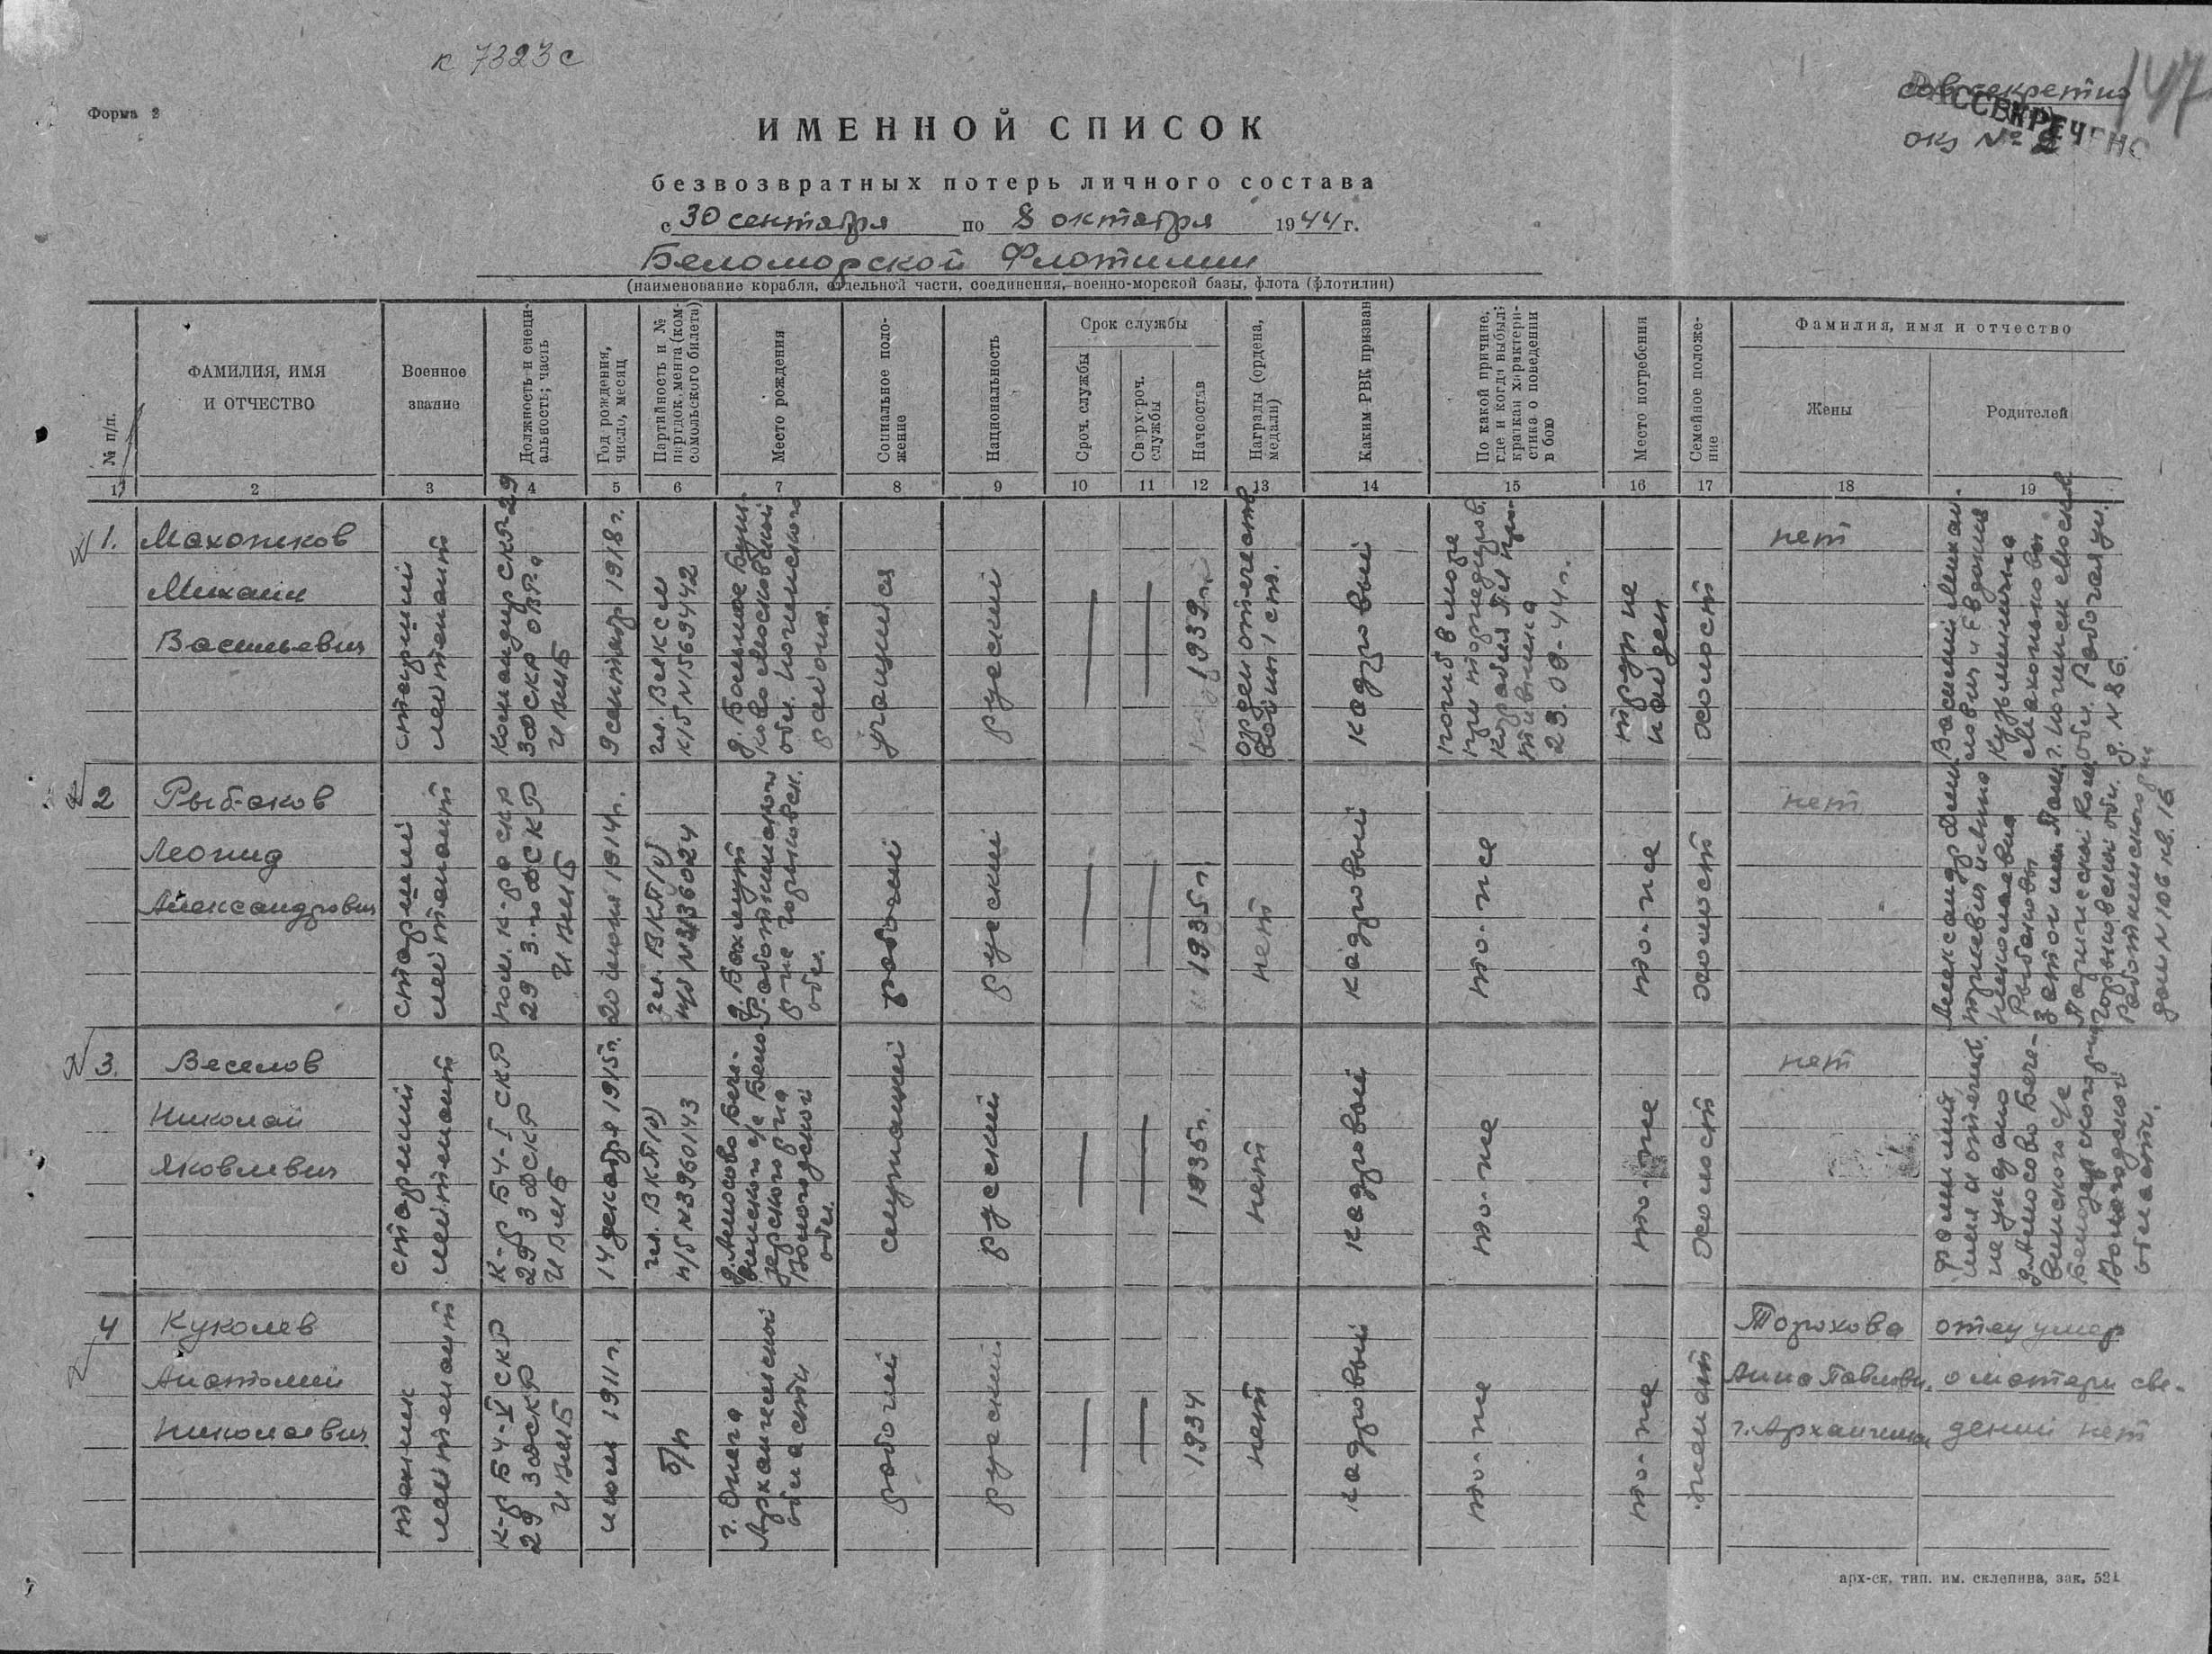 к 7323 с
Форма 2
сов. секретно
147
РАССЕКРЕЧЕНО
экз № 2
ИМЕННОЙ СПИСОК
безвозвратных потерь личного состава
с 30 сентября по 8 октября 1944 г.
Беломорской Флотилии
(наименование корабля, отдельной части, соединения, военно-морской базы, флота (флотилии)
№ п/п.
ФАМИЛИЯ, ИМЯ
И ОТЧЕСТВО
Военное
звание
Должность и специ-
альность; часть
Год рождения,
число, месяц
Партийность и №
партдокумента (ком-
сомольского билета)
Место рождения
Социальное поло-
жение
Национальность
Срок службы
Сроч. службы
Сверхсроч.
службы
Начсостав
Награды (ордена,
медали)
Каким РВК призван
По какой причине,
где и когда выбыл;
краткая характери-
стика о поведении
в бою
Место погребения
Семейное положе-
ние
Фамилия, имя и отчество
Жены
Родителей
1 2 3 4 5 6 7 8 9 10 11 12 13 14 15 16 17 18 19
1. Махоньков
Михаил
Васильевич
старший
лейтенант
Командир СКР-29
3 ДСКР ОВРа
ИВМБ
9 сентябр 1918 г.
чл. ВЛКСМ
к/б №15694142
обл. Ногинского
района.
учащийся
русский
1939 г.
орден отечеств.
войны 1 ст.
кадровый
погиб в море
при торпедиров.
корабля ПЛ про-
тивника
23.09-44 г.
труп не
найден
холост
нет
Василий Михай-
лович и Евдокия
Кузьминична
Махоньковы
г. Ногинск Моск.
обл. Рабочая ул.
д. № 86.
2 Рыбаков
Леонид
Александрович
старший
лейтенант
пом. к-ра СКР
29 3-го ДСКР
ИВМБ
20 июня 1914 г.
чл. ВКП(б)
р-на Горьковск.
обл.
рабочий
русский
1935 г.
нет
кадровый
то-же
то-же
холост
нет
Александр Дми-
триевич и Анна
Николаевна
Рыбаковы
Затон им. Пам.
Парижской Ком.
Горьковской обл.
Работкинского р-н
дом № 106 кв. 16
3. Веселов
Николай
Яковлевич
старший
лейтенант
к-р БЧ-I СКР
29 3 ДСКР
ИВМБ
14 декабря 1915 г.
чл. ВКП(б)
п/б №3960143
д. Амосово Бече-
винского с/с Бело-
зерского р-на
Вологодской
обл.
служащий
русский
1935 г.
нет
кадровый
то-же
то-же
холост
нет
фамилия,
имя и отчеств.
не указано
д. Амосово Бече-
винского с/с
Белозерского р-на
Вологодской
области.
4 Куколев
Анатолий
Николаевич
техник
лейтенант
к-р БЧ-V СКР
29 3 ДСКР
ИВМБ
июль 1911 г.
б/п
г. Онега
Архангельской
области
рабочий
русский
1934
нет
кадровый
то-же
то-же
женат
Торохова
Анна Павловн.
г. Архангельск
отец умер
о матери све-
дений нет
арх-ск. тип. им. склепина, зак. 521